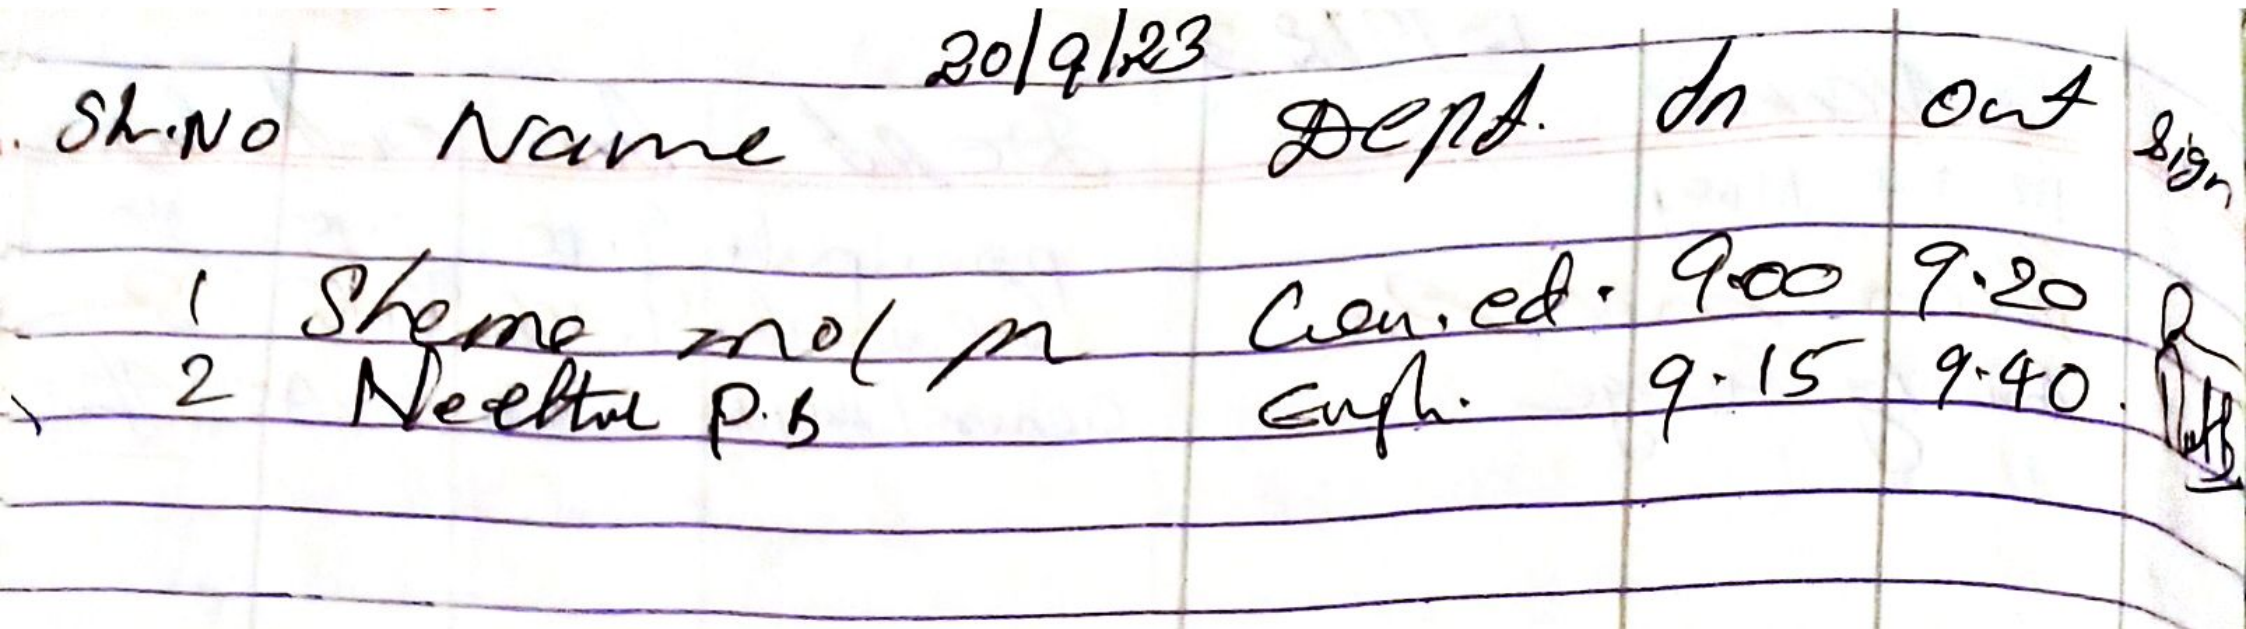 20/9/23
SL.NO Name Dept. In Out Sign
1 Shema mol M Gen.ed. 9.00 9.20
2 P.B Engh. 9.15 9.40